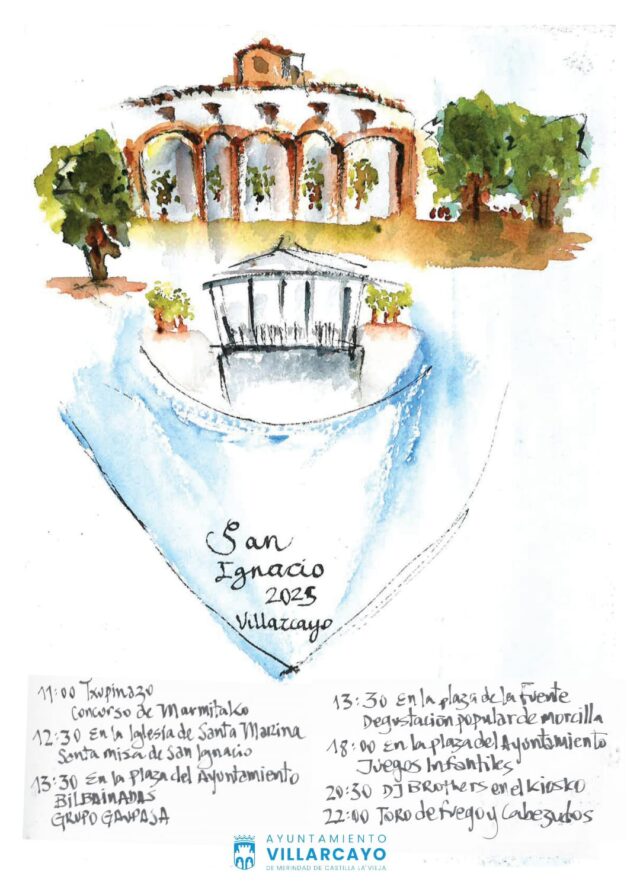 San
Ignacio
2025
Villarcayo
11:00 Txupinazo
Concurso de Marmitako
12:30 En la Iglesia de Santa Marina
Santa misa de San Ignacio
13:30 En la plaza del Ayuntamiento
BILBAINADAS
GRUPO
13:30 En la plaza de la Fuente
Degustación popular de morcilla
18:00 En la plaza del Ayuntamiento
Juegos Infantiles
20:30 DJ Brothers en el Kiosko
22:00 Toro de fuego y Cabezudos
AYUNTAMIENTO
VILLARCAYO
DE MERINDAD DE CASTILLA LA VIEJA